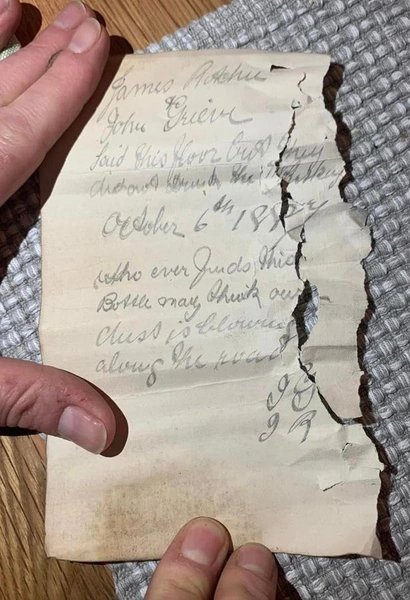 James Ritchie
& John Grieve
laid this floor but they
did not drink the whiskey
October 6th 1887
who ever finds this
Bottle may think our
dust is blowing
along the road
J G
J R